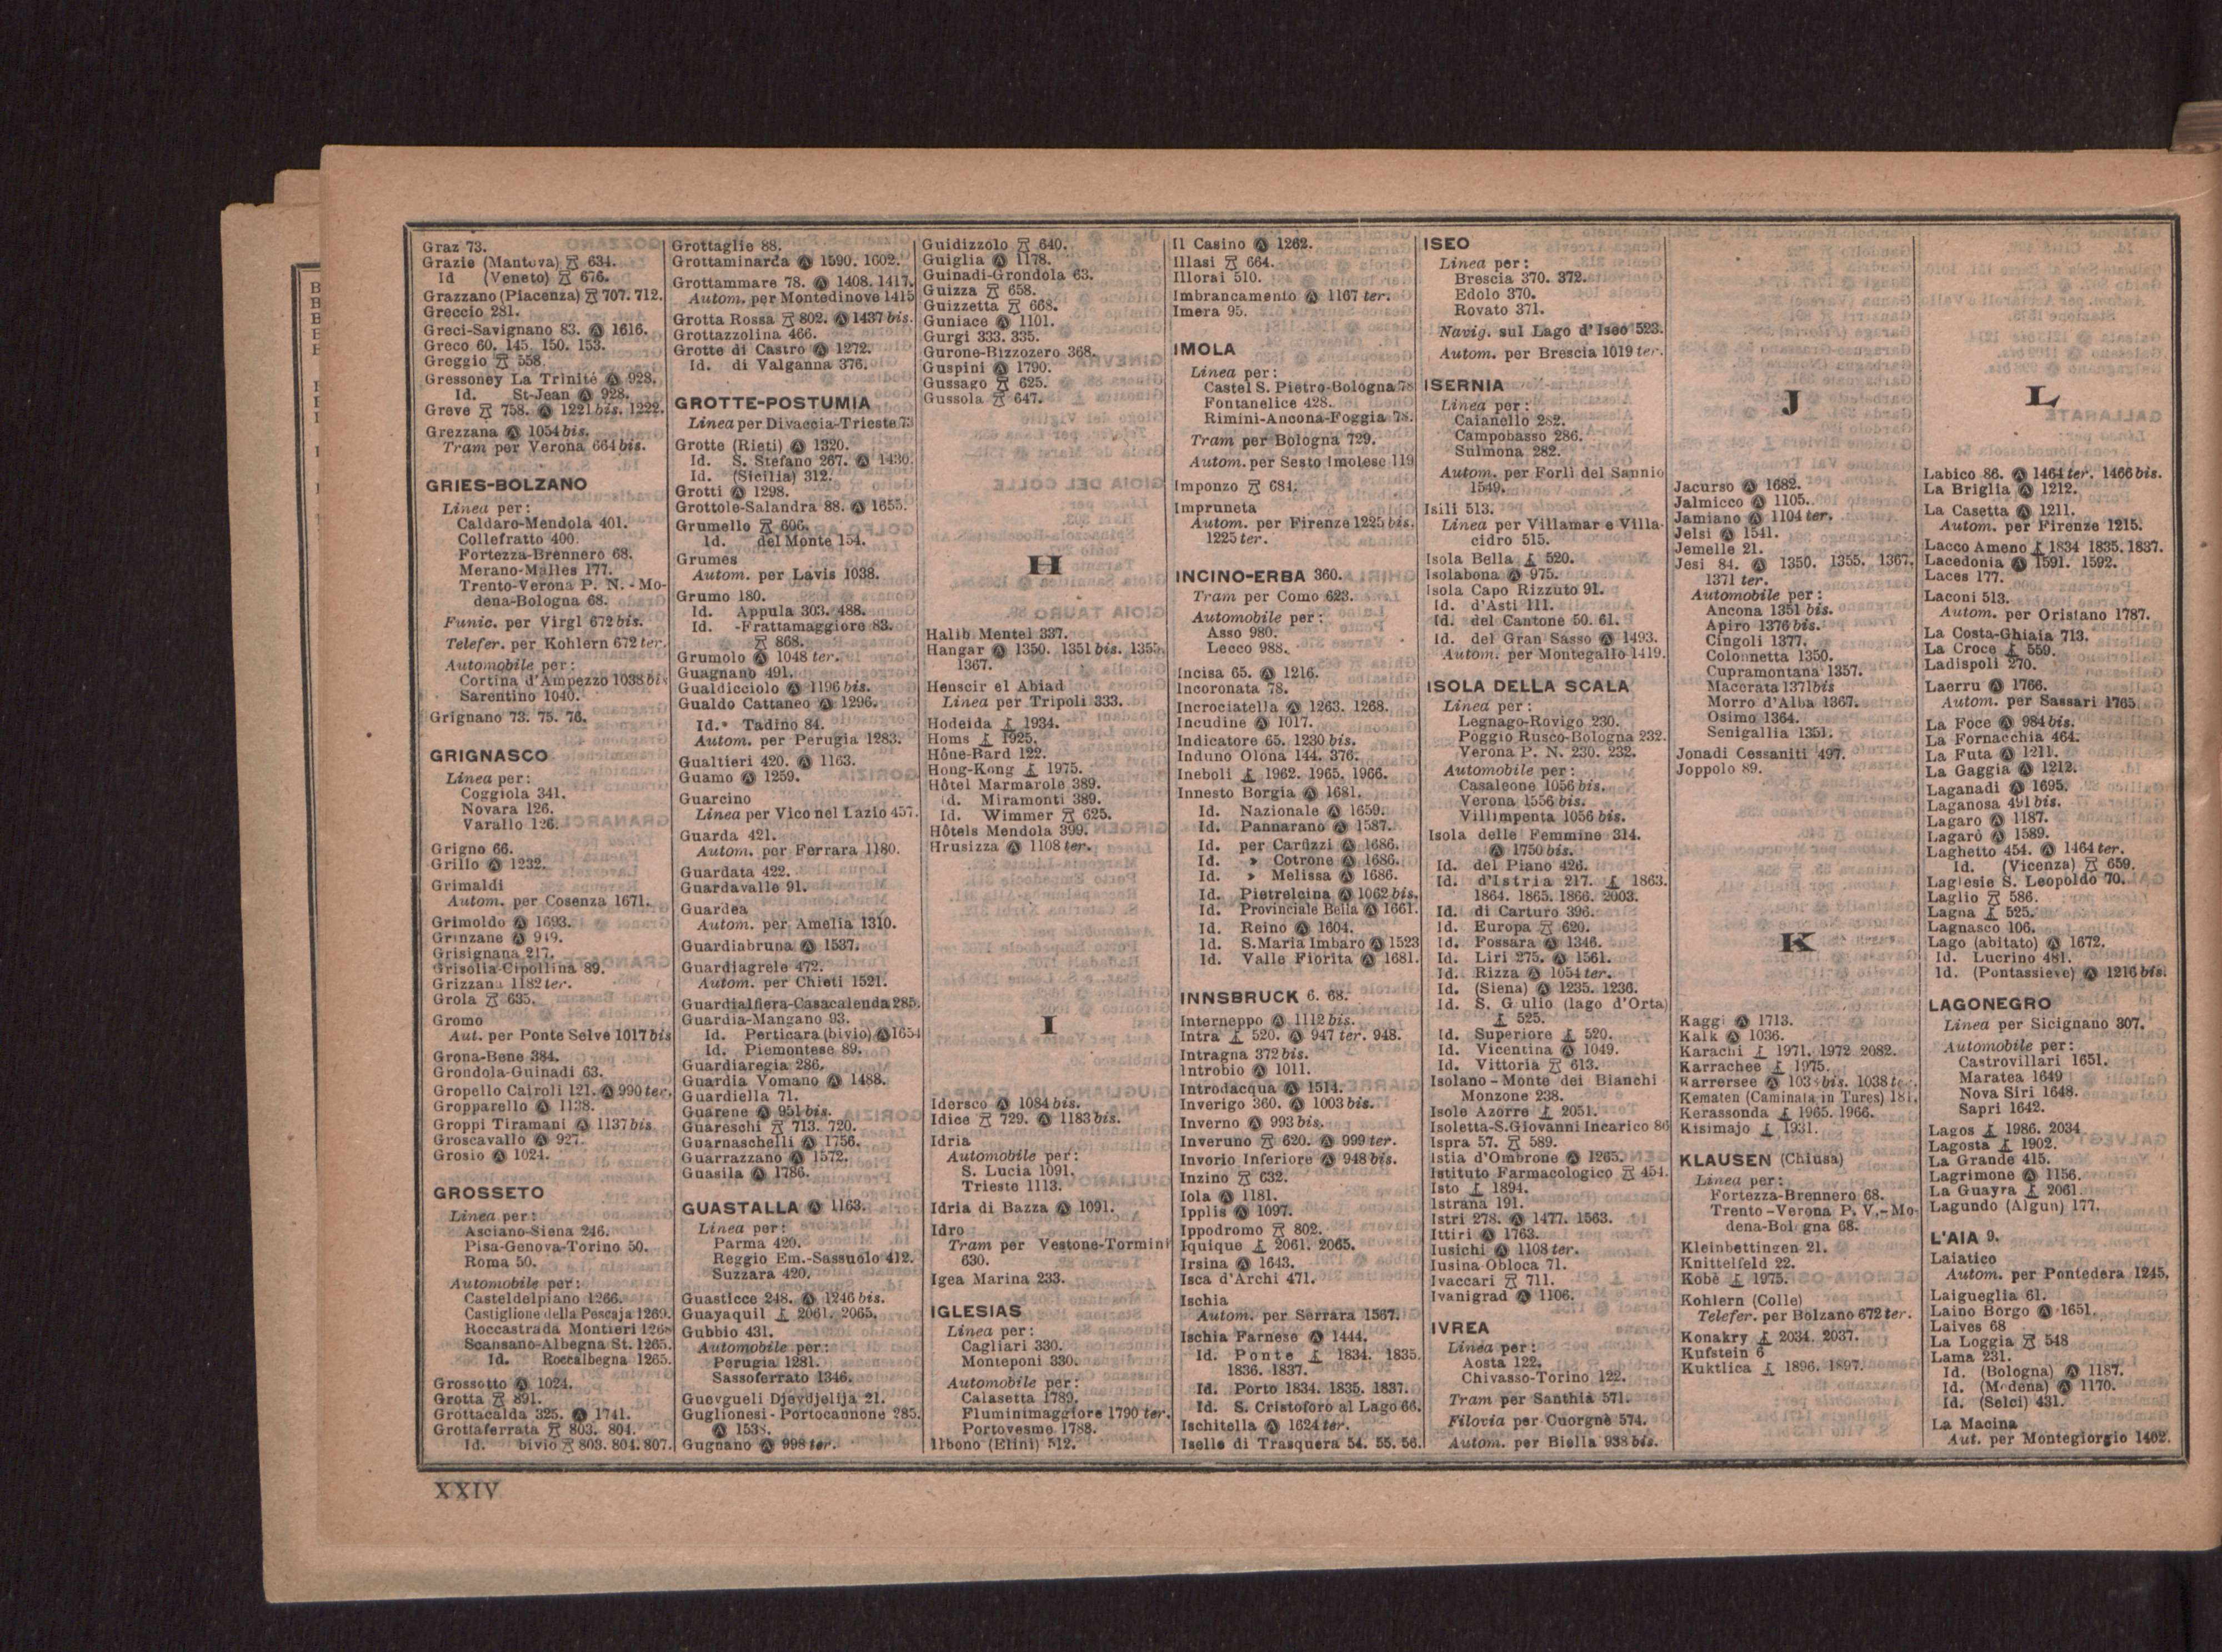 Graz 73.
Grazie (Mantova) 634.
Id (Veneto) 676.
Grazzano (Piacenza) 707. 712.
Greccio 281.
Greci-Savignano 83. Ⓐ 1616.
Greco 60. 145. 150. 153.
Greggio 558
Gressoney La Trinité Ⓐ 928.
Id. St-Jean Ⓐ 928.
Greve 758. Ⓐ 1221 bis. 1222.
Grezzana Ⓐ 1054 bis.
Tram per Verona 664 bis.
GRIES-BOLZANO
Linea per:
Caldaro-Mendola 401.
Collefratto 400.
Fortezza-Brennero 68.
Merano-Malles 177.
Trento-Verona P. N. - Mo-
dena-Bologna 68.
Funic. per Virgl 672 bis.
Telefer. per Kohlern 672 ter.
Automobile per:
Cortina d'Ampezzo 1038 bis
Sarentino 1040.
Grignano 73. 75. 76.
GRIGNASCO
Linea per:
Coggiola 341.
Novara 126.
Varallo 126.
Grigno 66.
Grillo Ⓐ 1232.
Grimaldi
Autom. per Cosenza 1671.
Grimoldo Ⓐ 1693.
Grinzane Ⓐ 949.
Grisignana 217.
Grisolia-Cipollina 89.
Grizzana 1182 ter.
Grola 635.
Gromo
Aut. per Ponte Selve 1017 bis
Grona-Bene 384.
Grondola-Guinadi 63.
Gropello Cairoli 121. Ⓐ 990 ter.
Gropparello Ⓐ 1138.
Groppi Tiramani Ⓐ 1137 bis
Groscavallo Ⓐ 927.
Grosio Ⓐ 1024.
GROSSETO
Linea per:
Asciano-Siena 246.
Pisa-Genova-Torino 50.
Roma 50.
Automobile per:
Casteldelpiano 1266.
Castiglione della Pescaja 1269.
Roccastrada Montieri 1268
Scansano-Albegna St. 1265.
Id. Roccalbegna 1265.
Grossotto Ⓐ 1024.
Grotta 891.
Grottacalda 325. Ⓐ 1741.
Grottaferrata 803. 804.
Id. bivio 803. 804. 807.
Grottaglie 88.
Grottaminarda Ⓐ 1590. 1602.
Grottammare 78. Ⓐ 1408. 1417.
Autom. per Montedinove 1415
Grotta Rossa 802. Ⓐ 1437 bis.
Grottazzolina 466.
Grotte di Castro Ⓐ 1272.
Id. di Valganna 376.
GROTTE-POSTUMIA
Linea per Divaccia-Trieste 73
Grotte (Rieti) Ⓐ 1320.
Id. S. Stefano 267. Ⓐ 1430.
Id. (Sicilia) 312.
Grotti Ⓐ 1298.
Grottole-Salandra 88. Ⓐ 1655.
Grumello 606.
Id. del Monte 154.
Grumes
Autom. per Lavis 1038.
Grumo 180.
Id. Appula 303. 488.
Id. -Frattamaggiore 83.
868.
Grumolo Ⓐ 1048 ter.
Guagnano 491.
Gualdicciolo Ⓐ 1196 bis.
Gualdo Cattaneo Ⓐ 1296.
Id. Tadino 84.
Autom. per Perugia 1283.
Gualtieri 420. Ⓐ 1163.
Guamo Ⓐ 1259.
Guarcino
Linea per Vico nel Lazio 457.
Guarda 421.
Autom. per Ferrara 1180.
Guardata 422.
Guardavalle 91.
Guardea
Autom. per Amelia 1310.
Guardiabruna Ⓐ 1537.
Guardiagrele 472.
Autom. per Chieti 1521.
Guardialfiera-Casacalenda 285.
Guardia-Mangano 93.
Id. Perticara (bivio) Ⓐ 1654
Id. Piemontese 89.
Guardiaregia 286.
Guardia Vomano Ⓐ 1488.
Guardiella 71.
Guarene Ⓐ 951 bis.
Guareschi 713. 720.
Guarnaschelli Ⓐ 1756.
Guarrazzano Ⓐ 1572.
Guasila Ⓐ 1786.
GUASTALLA Ⓐ 1163.
Linea per:
Parma 420.
Reggio Em.-Sassuolo 412.
Suzzara 420.
Guasticce 248. Ⓐ 1246 bis.
Guayaquil 2061. 2065.
Gubbio 431.
Automobile per:
Perugia 1281.
Sassoferrato 1346.
Guevgueli Djevdjelija 21.
Guglionesi - Portocannone 285.
Ⓐ 1538.
Gugnano Ⓐ 998 ter.
Guidizzolo 640.
Guiglia Ⓐ 1178.
Guinadi-Grondola 63.
Guizza 658.
Guizzetta 668.
Guniace Ⓐ 1101.
Gurgi 333. 335.
Gurone-Bizzozero 368.
Guspini Ⓐ 1790.
Gussago 625.
Gussola 647.
H
Halib Mentel 337.
Hangar Ⓐ 1350. 1351 bis. 1355.
1367.
Henscir el Abiad
Linea per Tripoli 333.
Hodeida 1934.
Homs 1925.
Hône-Bard 122.
Hong-Kong 1975.
Hôtel Marmarole 389.
Id. Miramonti 389.
Id. Wimmer 625.
Hôtels Mendola 399.
Hrusizza Ⓐ 1108 ter.
I
Idersco Ⓐ 1084 bis.
Idice 729. Ⓐ 1183 bis.
Idria
Automobile per:
S. Lucia 1091.
Trieste 1113.
Idria di Bazza Ⓐ 1091.
Idro
Tram per Vestone-Tormini
630.
Igea Marina 233.
IGLESIAS
Linea per:
Cagliari 330.
Monteponi 330.
Automobile per:
Calasetta 1789.
Fluminimaggiore 1790 ter.
Portovesme 1788.
Ilbono (Elini) 512.
Il Casino Ⓐ 1262.
Illasi 664.
Illorai 510.
Imbrancamento Ⓐ 1167 ter.
Imera 95.
IMOLA
Linea per:
Castel S. Pietro-Bologna 78
Fontanelice 428.
Rimini-Ancona-Foggia 78.
Tram per Bologna 729.
Autom. per Sesto Imolese 119
Imponzo 684.
Impruneta
Autom. per Firenze 1225 bis.
1225 ter.
INCINO-ERBA 360.
Tram per Como 623.
Automobile per:
Asso 980.
Lecco 988.
Incisa 65. Ⓐ 1216.
Incoronata 78.
Incrociatella Ⓐ 1263. 1268.
Incudine Ⓐ 1017.
Indicatore 65. 1230 bis.
Induno Olona 144. 376.
Ineboli 1962. 1965. 1966.
Innesto Borgia Ⓐ 1681.
Id. Nazionale Ⓐ 1659.
Id. Pannarano Ⓐ 1587.
Id. per Carfizzi Ⓐ 1686.
Id. » Cotrone Ⓐ 1686.
Id. » Melissa Ⓐ 1686.
Id. Pietrelcina Ⓐ 1062 bis.
Id. Provinciale Bella Ⓐ 1661.
Id. Reino Ⓐ 1604.
Id. S. Maria Imbaro Ⓐ 1523
Id. Valle Fiorita Ⓐ 1681.
INNSBRUCK 6. 68.
Interneppo Ⓐ 1112 bis.
Intra 520. Ⓐ 947 ter. 948.
Intragna 372 bis.
Introbio Ⓐ 1011.
Introdacqua Ⓐ 1514.
Inverigo 360. Ⓐ 1003 bis.
Inverno Ⓐ 993 bis.
Inveruno 620. Ⓐ 999 ter.
Invorio Inferiore Ⓐ 948 bis.
Inzino 632.
Iola Ⓐ 1181.
Ipplis Ⓐ 1097.
Ippodromo 802.
Iquique 2061. 2065.
Irsina Ⓐ 1643.
Isca d'Archi 471.
Ischia
Autom. per Serrara 1567.
Ischia Farnese Ⓐ 1444.
Id. Ponte 1834. 1835.
1836. 1837.
Id. Porto 1834. 1835. 1837.
Id. S. Cristoforo al Lago 66.
Ischitella Ⓐ 1624 ter.
Iselle di Trasquera 54. 55. 56.
ISEO
Linea per:
Brescia 370. 372.
Edolo 370.
Rovato 371.
Navig. sul Lago d'Iseo 523.
Autom. per Brescia 1019 ter.
ISERNIA
Linea per:
Caianello 282.
Campobasso 286.
Sulmona 282.
Autom. per Forli del Sannio
1549.
Isili 513.
Linea per Villamar e Villa-
cidro 515.
Isola Bella 520.
Isolabona Ⓐ 975.
Isola Capo Rizzuto 91.
Id. d'Asti 111.
Id. del Cantone 50. 61.
Id. del Gran Sasso Ⓐ 1493.
Autom. per Montegallo 1419.
ISOLA DELLA SCALA
Linea per:
Legnago-Rovigo 230.
Poggio Rusco-Bologna 232.
Verona P. N. 230. 232.
Automobile per:
Casaleone 1056 bis.
Verona 1556 bis.
Villimpenta 1056 bis.
Isola delle Femmine 314.
Ⓐ 1750 bis.
Id. del Piano 426.
Id. d'Istria 217. 1863.
1864. 1865. 1866. 2003.
Id. di Carturo 396.
Id. Europa 620.
Id. Fossara Ⓐ 1346.
Id. Liri 275. Ⓐ 1561.
Id. Rizza Ⓐ 1054 ter.
Id. (Siena) Ⓐ 1235. 1236.
Id. S. Giulio (lago d'Orta)
525.
Id. Superiore 520.
Id. Vicentina Ⓐ 1049.
Id. Vittoria 613.
Isolano - Monte dei Bianchi
Monzone 238.
Isole Azorre 2051.
Isoletta-S. Giovanni Incarico 86
Ispra 57. 589.
Istia d'Ombrone Ⓐ 1265.
Istituto Farmacologico 454.
Isto 1894.
Istrana 191.
Istri 278. Ⓐ 1477. 1563.
Ittiri Ⓐ 1763.
Iusichi Ⓐ 1108 ter.
Iusina Obloca 71.
Ivaccari 711.
Ivanigrad Ⓐ 1106.
IVREA
Linea per:
Aosta 122.
Chivasso-Torino 122.
Tram per Santhià 571.
Filovia per Cuorgnè 574.
Autom. per Biella 938 bis.
J
Jacurso Ⓐ 1682.
Jalmicco Ⓐ 1105.
Jamiano Ⓐ 1104 ter.
Jelsi Ⓐ 1541.
Jemelle 21.
Jesi 84. Ⓐ 1350. 1355. 1367.
1371 ter.
Automobile per:
Ancona 1351 bis.
Apiro 1376 bis.
Cingoli 1377.
Colonnetta 1350.
Cupramontana 1357.
Macerata 1371 bis
Morro d'Alba 1367.
Osimo 1364.
Senigallia 1351.
Jonadi Cessaniti 497.
Joppolo 89.
K
Kaggi Ⓐ 1713.
Kalk Ⓐ 1036.
Karachi 1971. 1972 2082.
Karrachee 1975.
Karrersee Ⓐ bis. 1038
Kematen (Caminata in Tures) 181.
Kerassonda 1965. 1966.
Kisimajo 1931.
KLAUSEN (Chiusa)
Linea per:
Fortezza-Brennero 68.
Trento - Verona P. V. - Mo-
dena-Bologna 68.
Kleinbettingen 21.
Knittelfeld 22.
Kobè 1975.
Kohlern (Colle)
Telefer. per Bolzano 672 ter.
Konakry 2034. 2037.
Kufstein 6
Kuktlica 1896. 1897.
L
Labico 86. Ⓐ 1464 ter. 1466 bis.
La Briglia Ⓐ 1212.
La Casetta Ⓐ 1211.
Autom. per Firenze 1215.
Lacco Ameno 1834 1835. 1837.
Lacedonia Ⓐ 1591. 1592.
Laces 177.
Laconi 513.
Autom. per Oristano 1787.
La Costa-Ghiaia 713.
La Croce 559.
Ladispoli 270.
Laerru Ⓐ 1766.
Autom. per Sassari 1765
La Foce Ⓐ 984 bis.
La Fornacchia 464.
La Futa Ⓐ 1211.
La Gaggia Ⓐ 1212.
Laganadi Ⓐ 1695.
Laganosa 491 bis.
Lagaro Ⓐ 1187.
Lagarò Ⓐ 1589.
Laghetto 454. Ⓐ 1464 ter.
Id. (Vicenza) 659.
Laglesie S. Leopoldo 70.
Laglio 586.
Lagna 525.
Lagnasco 106.
Lago (abitato) Ⓐ 1672.
Id. Lucrino 481.
Id. (Pontassieve) Ⓐ 1216 bis.
LAGONEGRO
Linea per Sicignano 307.
Automobile per:
Castrovillari 1651.
Maratea 1649
Nova Siri 1648.
Sapri 1642.
Lagos 1986. 2034
Lagosta 1902.
La Grande 415.
Lagrimone Ⓐ 1156.
La Guayra 2061.
Lagundo (Algun) 177.
L'AIA 9.
Laiatico
Autom. per Pontedera 1245.
Laigueglia 61.
Laino Borgo Ⓐ 1651.
Laives 68
La Loggia 548
Lama 231.
Id. (Bologna) Ⓐ 1187.
Id. (Modena) Ⓐ 1170.
Id. (Selci) 431.
La Macina
Aut. per Montegiorgio 1402.
XXIV